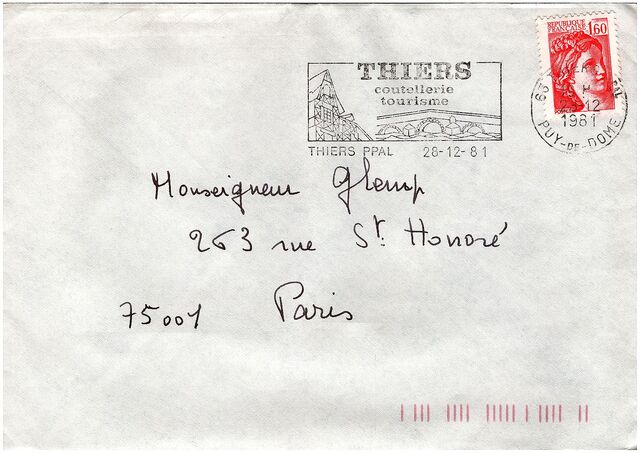 REPUBLIQUE FRANCAISE 1,60
THIERS
coutellerie
tourisme
THIERS PPAL 28-12-81
63
H
12
1981
PUY-DE-DOME
Monseigneur Glemp
263 rue St. Honoré
75001 Paris